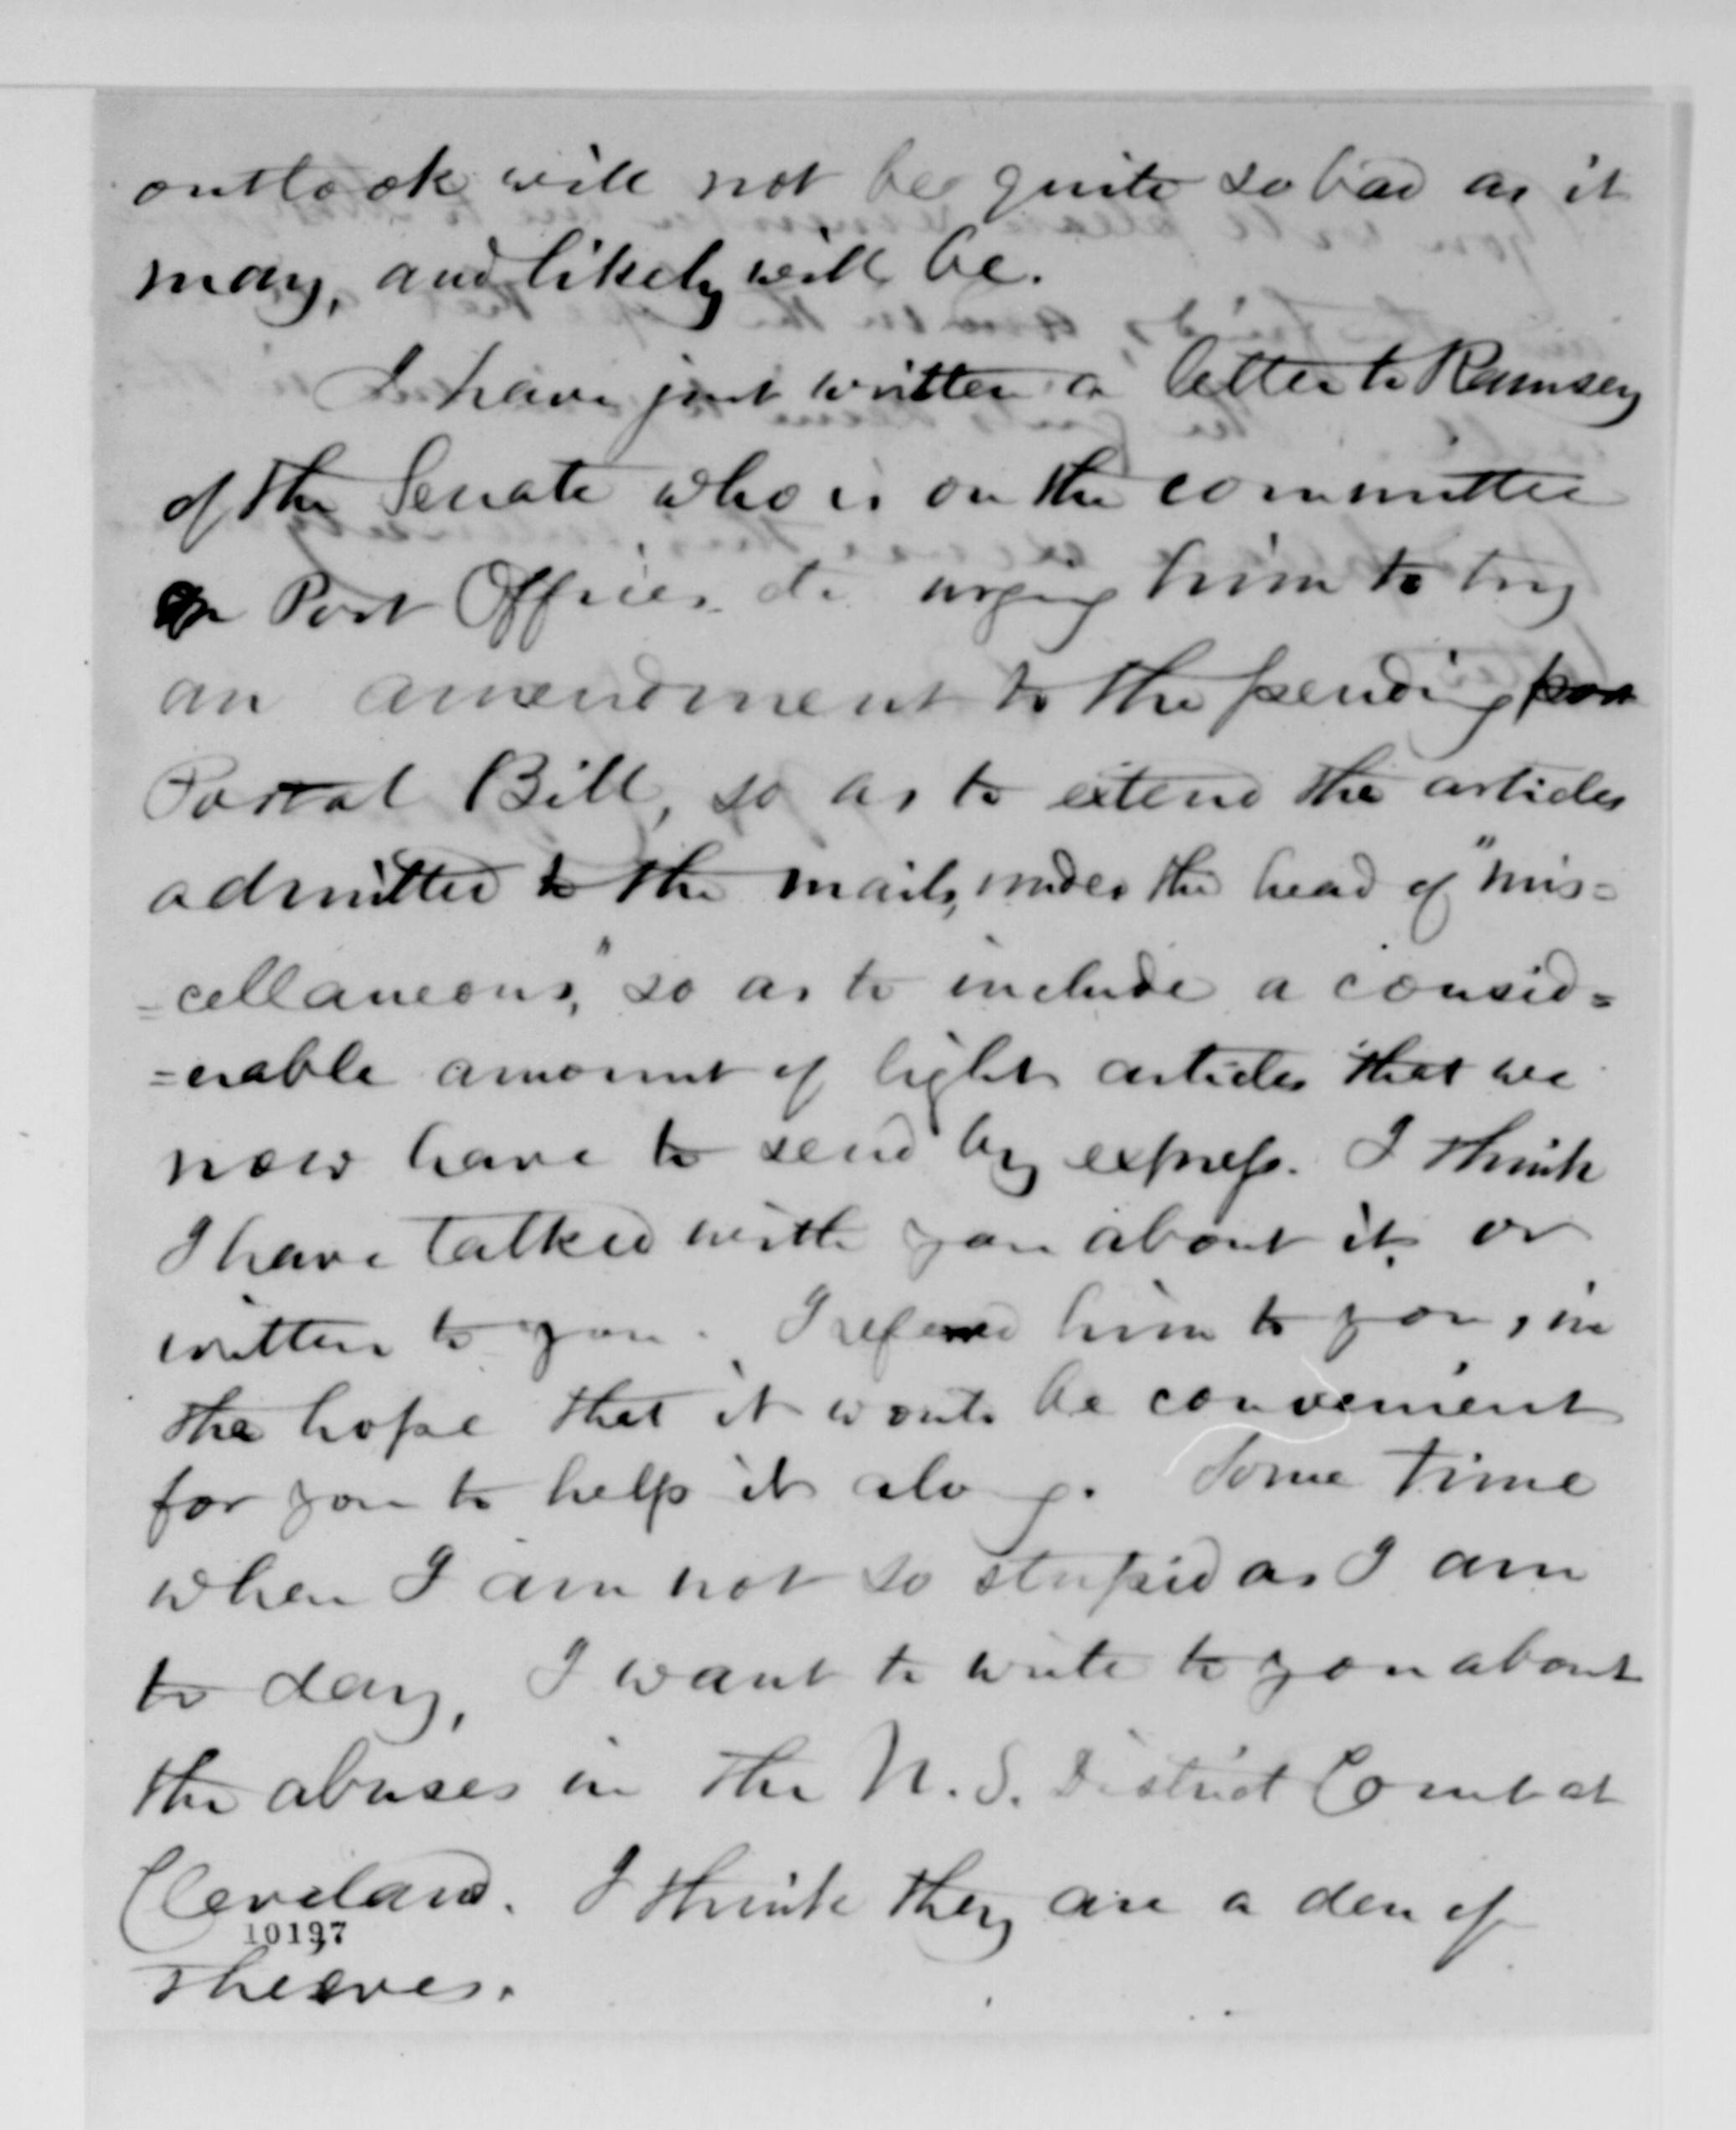 outlook will not be quite so bad as it
may, and likely will be.
I have just written a letter to Ramsey
of the Senate who is on the committee
on Post Offices &c urging him to try
an amendment to the pending
Postal Bill, so as to extend the articles
admitted to the mails, under the head of "mis=
=cellaneous," so as to include a consid=
=erable amount of light articles that we
now have to send by express. I think
I have talked with you about it, or
written to you. I refered him to you, in
the hope that it would be convenient
for you to help it along. Some time
when I am not so stupid as I am
to day, I want to write to you about
the abuses in the U.S. District Court at
Cleveland. I think they are a den of
10197
theives.